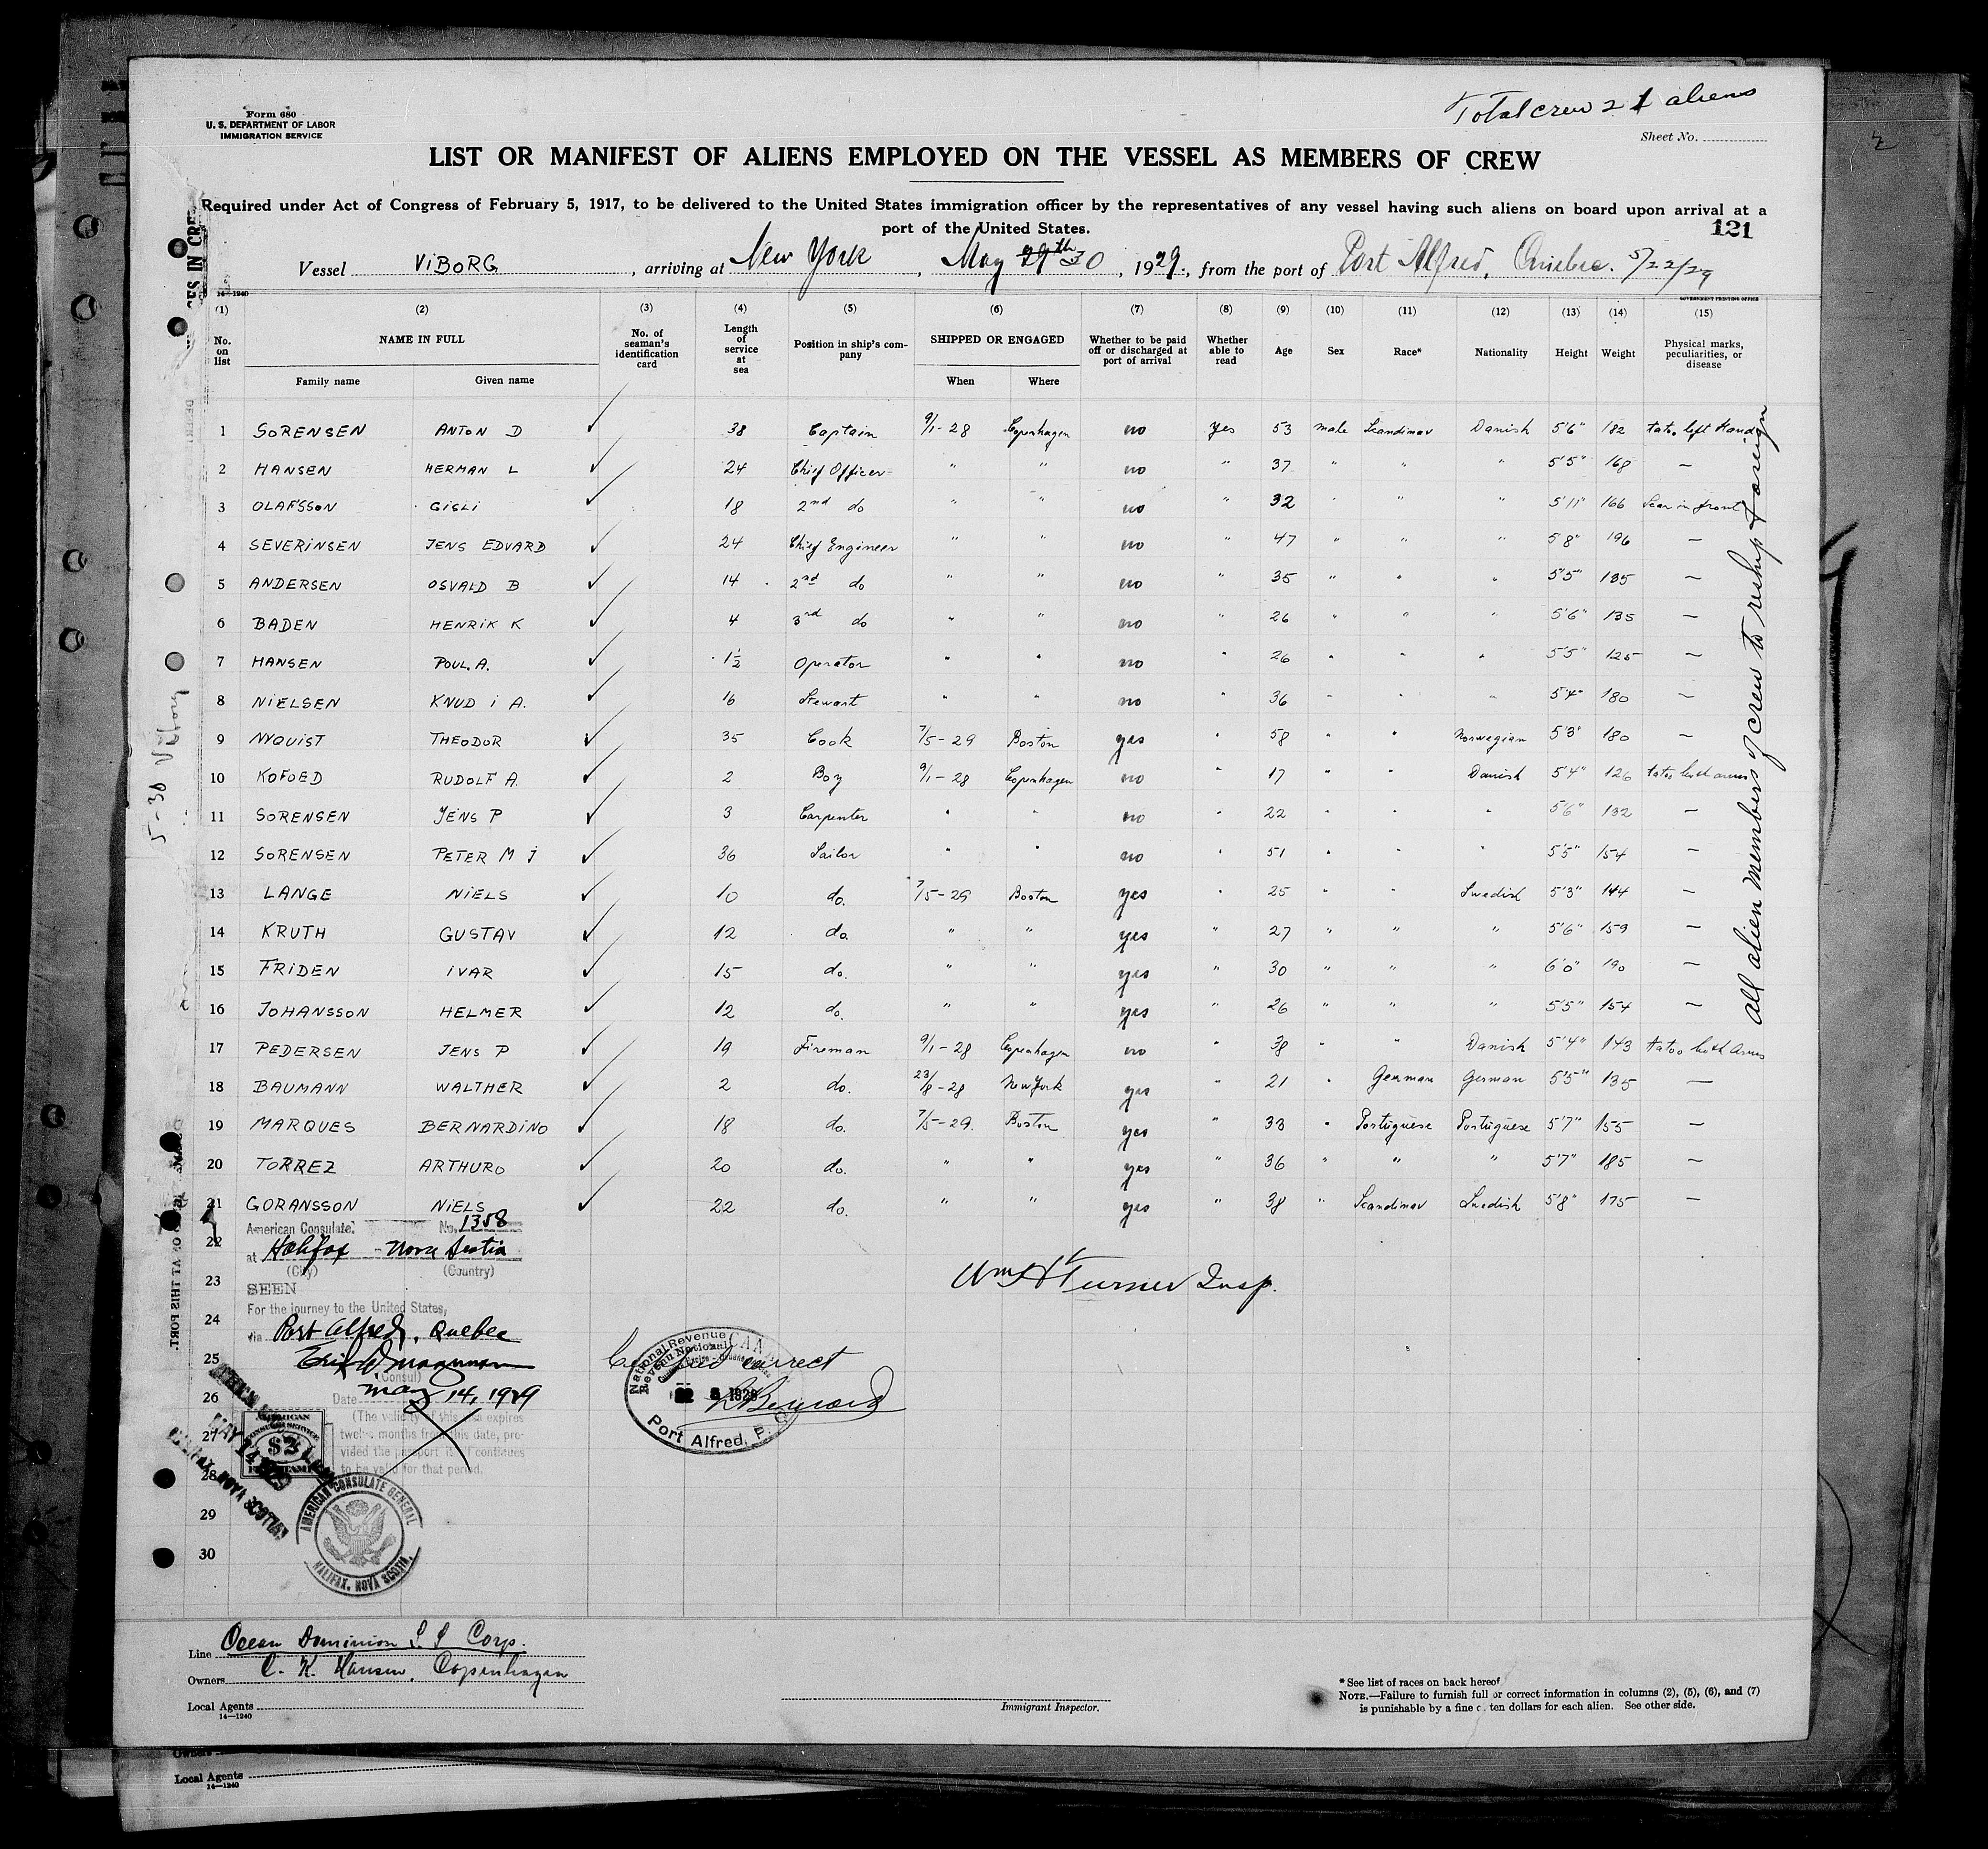 Total crew 21 aliens
Form 680
U. S. DEPARTMENT OF LABOR
IMMIGRATION SERVICE
Sheet No.
LIST OR MANIFEST OF ALIENS EMPLOYED ON THE VESSEL AS MEMBERS OF CREW
Required under Act of Congress of February 5, 1917, to be delivered to the United States immigration officer by the representatives of any vessel having such aliens on board upon arrival at a
port of the United States.
121
Vessel ViBORG, arriving at New York, May 29th 30, 1929, from the port of Port Alfred, Quebec. 5/22/29
14—1240
GOVERNMENT PRINTING OFFICE
(1) (2) (3) (4) (5) (6) (7) (8) (9) (10) (11) (12) (13) (14) (15)
No. on list NAME IN FULL No. of seaman's identification card Length of service at sea Position in ship's company SHIPPED OR ENGAGED Whether to be paid off or discharged at port of arrival Whether able to read Age Sex Race* Nationality Height Weight Physical marks, peculiarities, or disease
Family name Given name When Where
1 SORENSEN ANTON D 38 Captain 9/1-28 Copenhagen no yes 53 male Scandinav Danish 5'6" 182 tatoo left Hand
2 HANSEN HERMAN L 24 Chief Officer " " no " 37 " " " 5'5" 168 —
3 OLAFSSON GISLI 18 2nd do " " no " 32 " " " 5'11" 166 Scar in front
4 SEVERINSEN JENS EDVARD 24 Chief Engineer " " no " 47 " " " 5'8" 196 —
5 ANDERSEN OSVALD B 14 2nd do " " no " 35 " " " 5'5" 135 —
6 BADEN HENRIK K 4 3rd do " " no " 26 " " " 5'6" 135 —
7 HANSEN POUL. A. 1½ Operator " " no " 26 " " " 5'5" 125 —
8 NIELSEN KNUD i A. 16 Stewart " " no " 36 " " " 5'4" 180 —
9 NYQUIST THEODOR 35 Cook 7/5-29 Boston yes " 58 " " Norwegian 5'3" 180 —
10 KOFOED RUDOLF A. 2 Boy 9/1-28 Copenhagen no " 17 " " Danish 5'4" 126 tatoo both arms
11 SORENSEN JENS P 3 Carpenter " " no " 22 " " " 5'6" 132 —
12 SORENSEN PETER M J 36 Sailor " " no " 51 " " " 5'5" 154 —
13 LANGE NIELS 10 do. 7/5-29 Boston yes " 25 " " Swedish 5'3" 144 —
14 KRUTH GUSTAV 12 do. " " yes " 27 " " " 5'6" 159 —
15 FRIDEN IVAR 15 do. " " yes " 30 " " " 6'0" 190 —
16 JOHANSSON HELMER 12 do. " " yes " 26 " " " 5'5" 154 —
17 PEDERSEN JENS P 19 Fireman 9/1-28 Copenhagen no " 38 " " Danish 5'4" 143 tatoo both Arms
18 BAUMANN WALTHER 2 do. 23/8-28 New York yes " 21 " German German 5'5" 135 —
19 MARQUES BERNARDINO 18 do. 7/5-29. Boston yes " 33 " Portuguese Portuguese 5'7" 155 —
20 TORREZ ARTHURO 20 do. " " yes " 36 " " " 5'7" 185 —
21 GORANSSON NIELS 22 do. " " yes " 38 " Scandinav Swedish 5'8" 175 —
22
23
24
25
26
27
28
29
30
All alien members of crew to reship foreign
5-30 Viborg
American Consulate. No. 1358
at Halifax - Nova Scotia
(City) (Country)
SEEN
For the journey to the United States,
via Port Alfred, Quebec
(Consul)
Date May 14, 1929
(The validity of this visa expires
twelve months from this date, pro-
vided the passport itself continues
to be valid for that period.
AMERICAN
CONSULAR SERVICE
$2
MAY 14 1929
HALIFAX, NOVA SCOTIA
AMERICAN CONSULATE GENERAL
HALIFAX, NOVA SCOTIA.
Wm H Turner Insp.
Certified correct
National Revenue
Revenu National
CANADA
1929
Port Alfred, P.Q.
Bernard
Line Ocean Dominion S.S Corp.
Owners C. K. Hansen, Copenhagen
Local Agents
14—1240
Immigrant Inspector.
* See list of races on back hereof
NOTE.—Failure to furnish full or correct information in columns (2), (5), (6), and (7)
is punishable by a fine of ten dollars for each alien. See other side.
Owners
Local Agents
14—1240